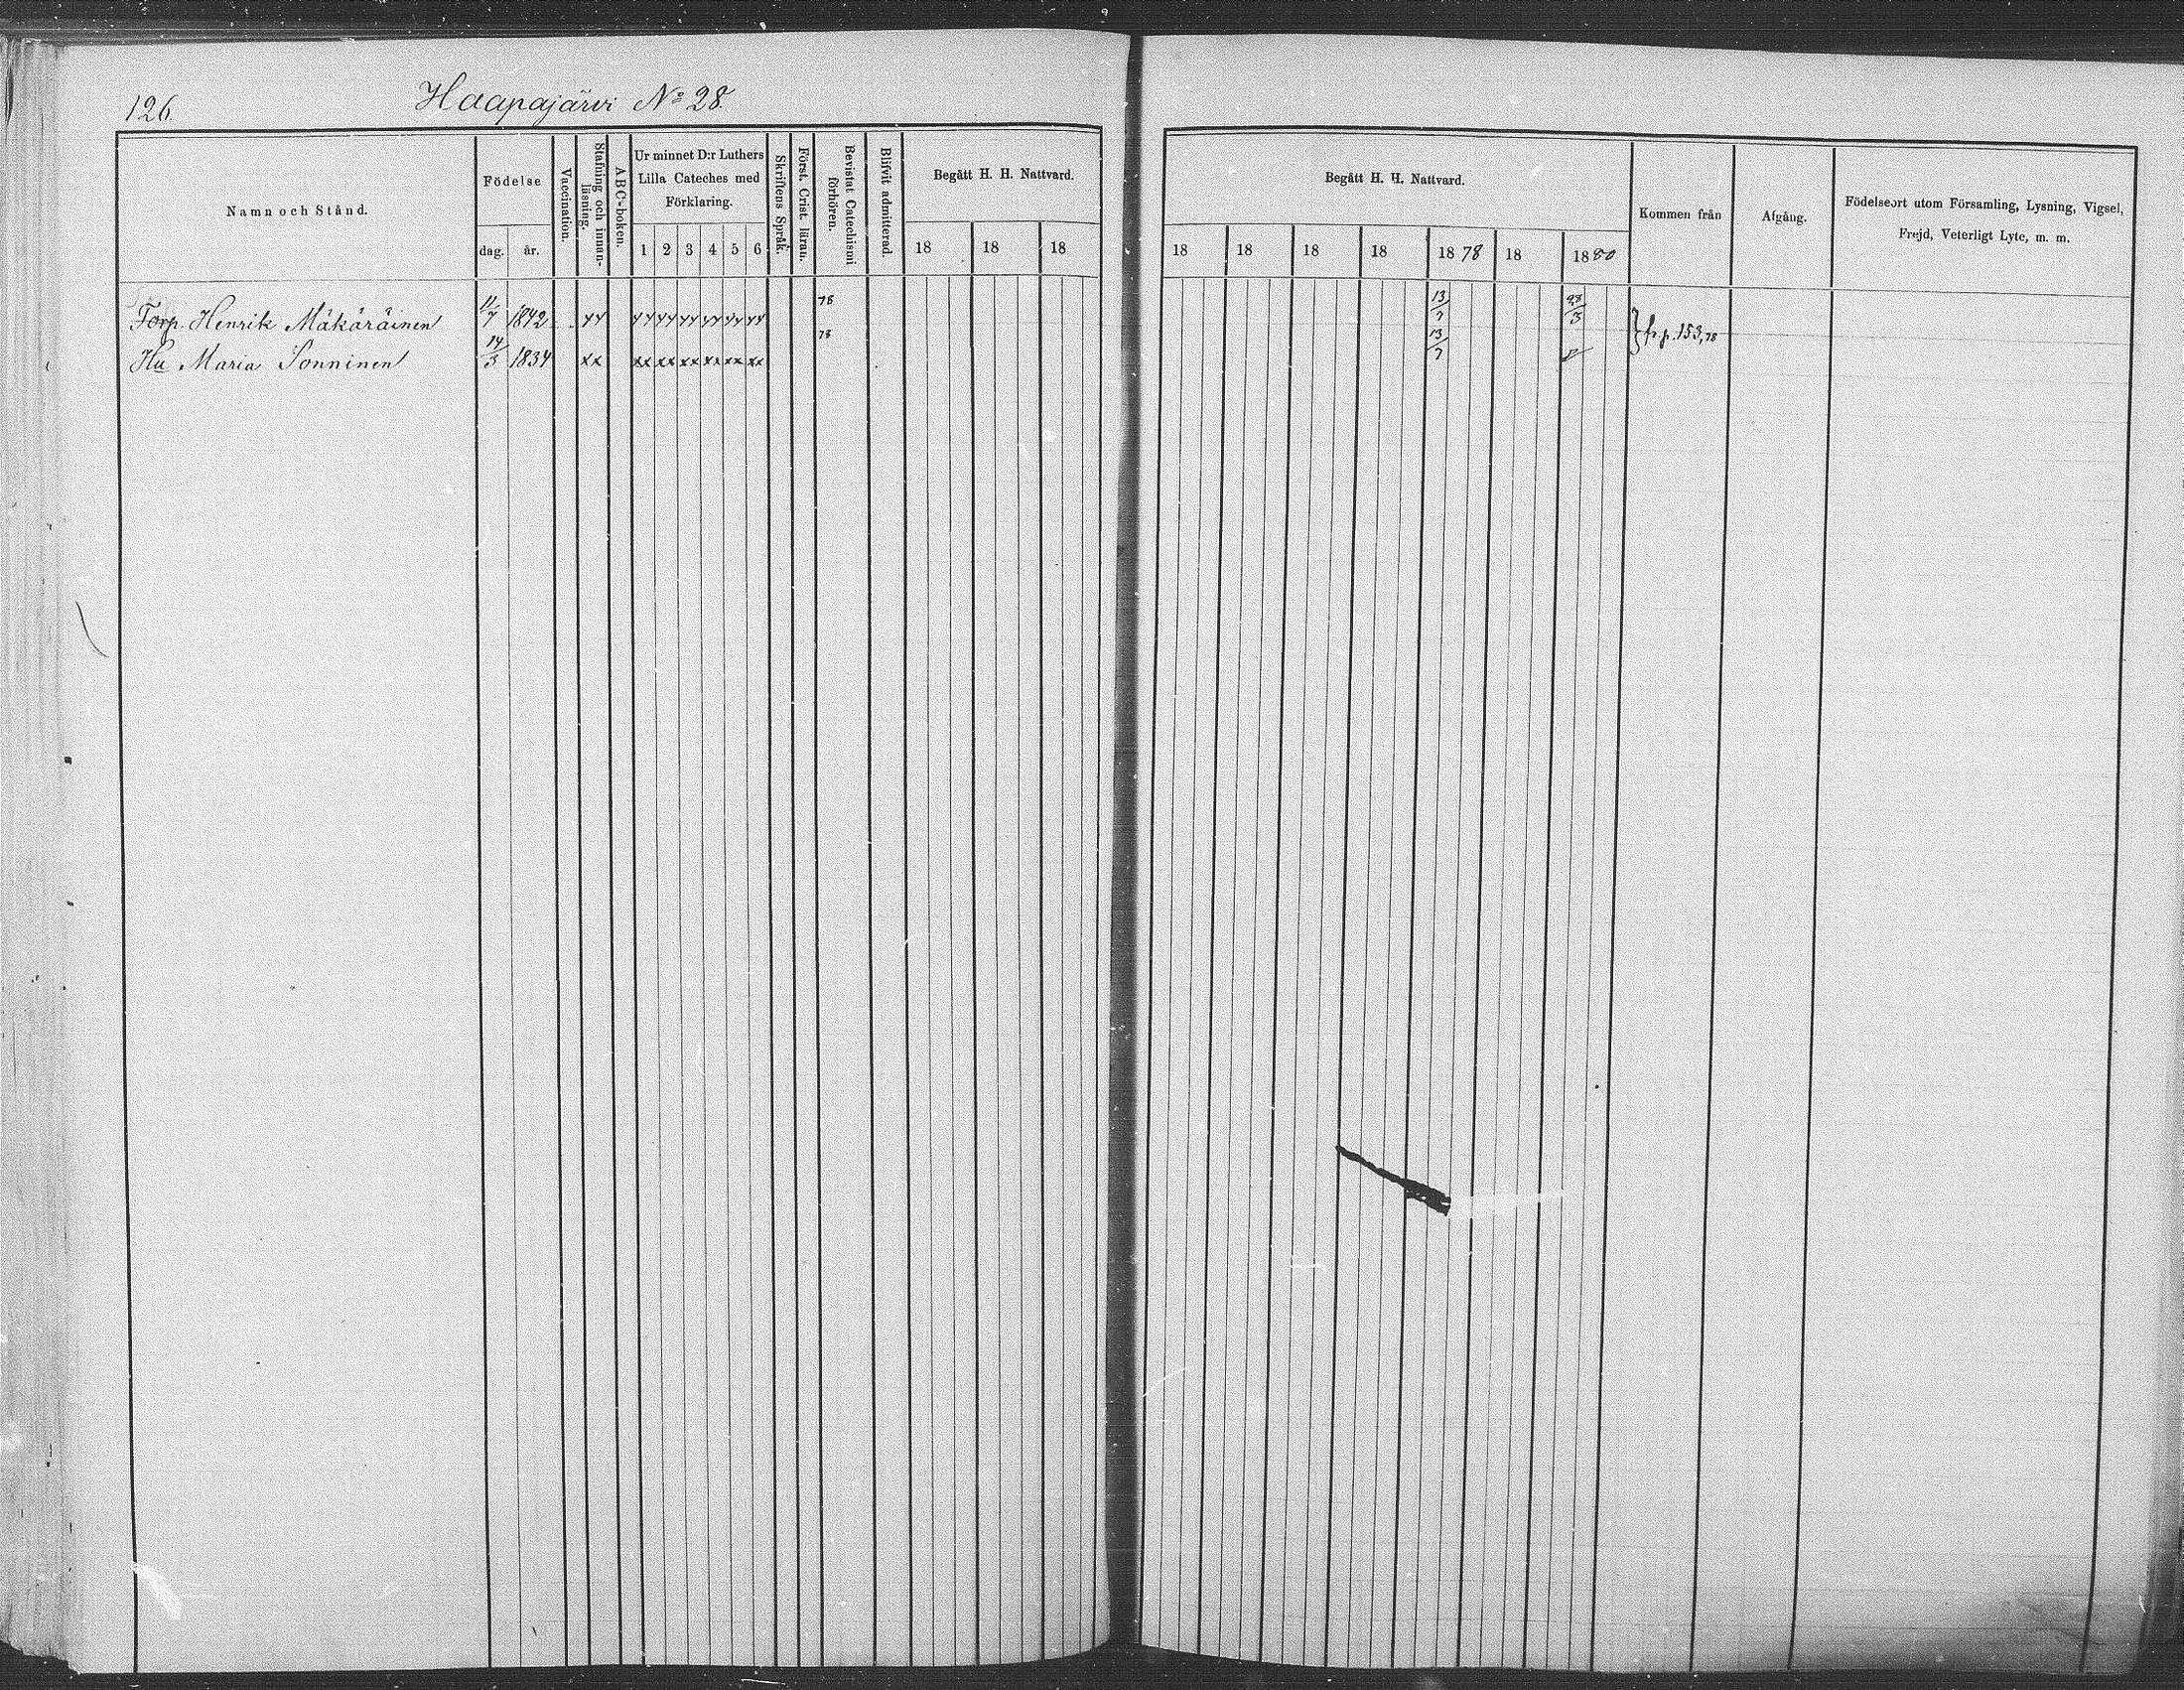 126.
Haapajärvi No 28.
Namn och Stånd.
Födelse
dag.
år.
Vaccination.
Stafning och innan-
läsning.
ABC-boken.
Ur minnet D:r Luthers
Lilla Cateches med
Förklaring.
1 2 3 4 5 6
Skriftens Språk.
Först. Crist. läran.
Bevistat Catechismi
förhören.
Blifvit admitterad.
Begått H. H. Nattvard.
18 18 18
Begått H. H. Nattvard.
18 18 18 18 1878 18 1880
Kommen från
Afgång.
Födelseort utom Församling, Lysning, Vigsel,
Frejd, Veterligt Lyte, m. m.
Torp. Henrik Mäkäräinen 11/7 1842 78 13/7 28/3
Hu Maria Sonninen 14/3 1834 xx xx xx xx xx xx xx 78 13/7
} fr. p. 153, 78